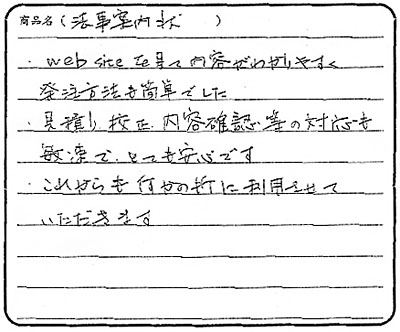 商品名(法事案内状)
・web siteを見て内容がわかりやすく
発注方法も簡単でした
・見積り、校正、内容確認等の対応も
敏速で、とても安心です
・これからも何かの折に利用させて
いただきます